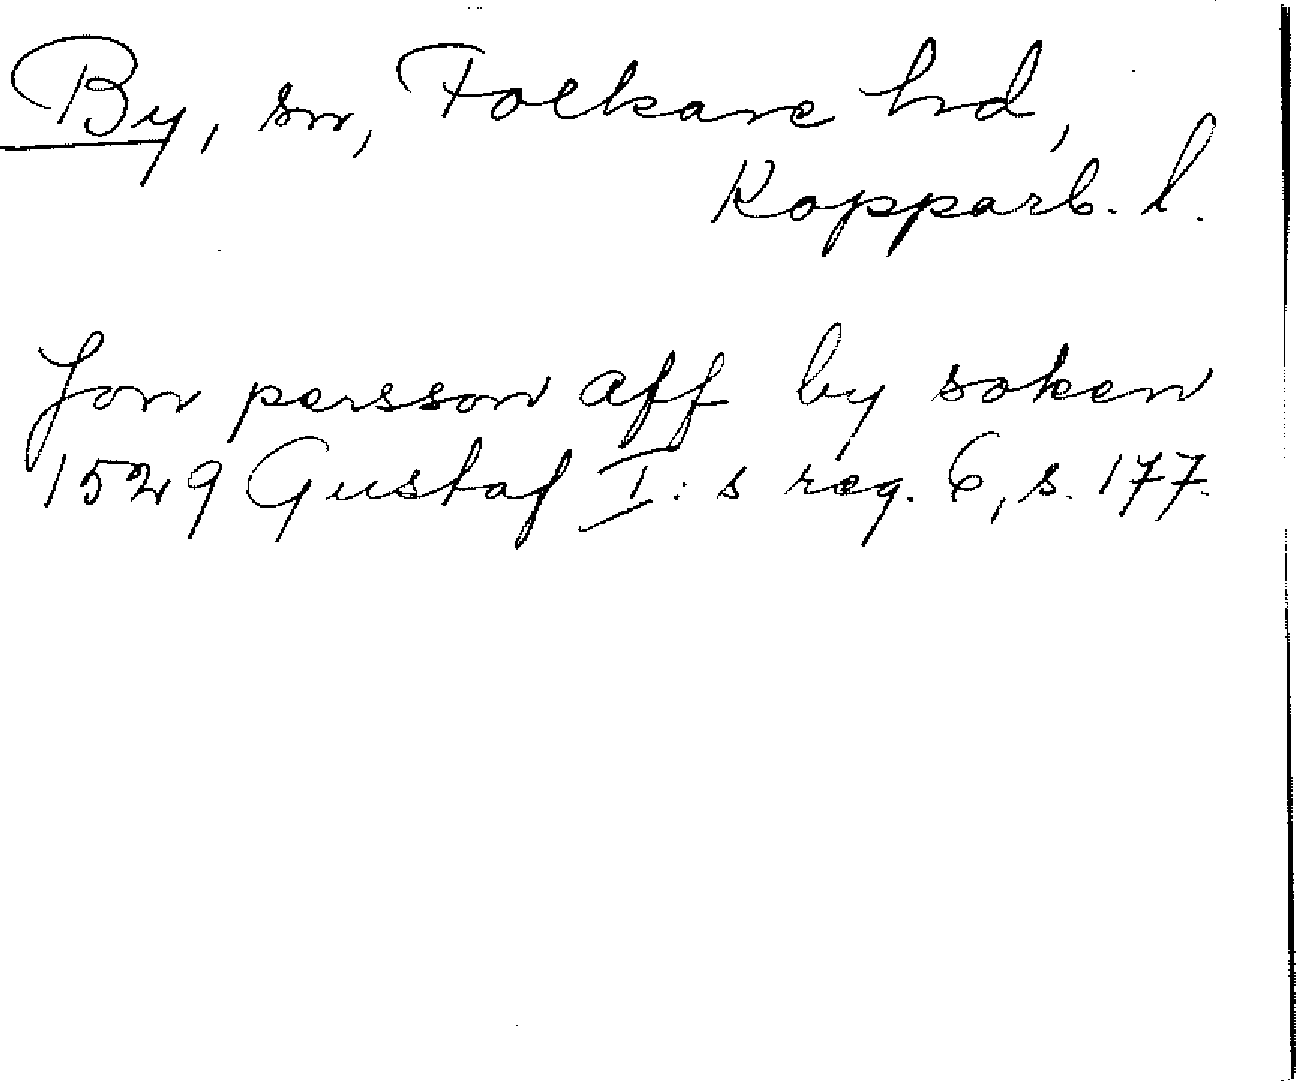 By, sn, Folkare hd,
Kopparb. l.
Jon persson aff by soken
1529 Gustaf I:s reg. 6, s. 177.